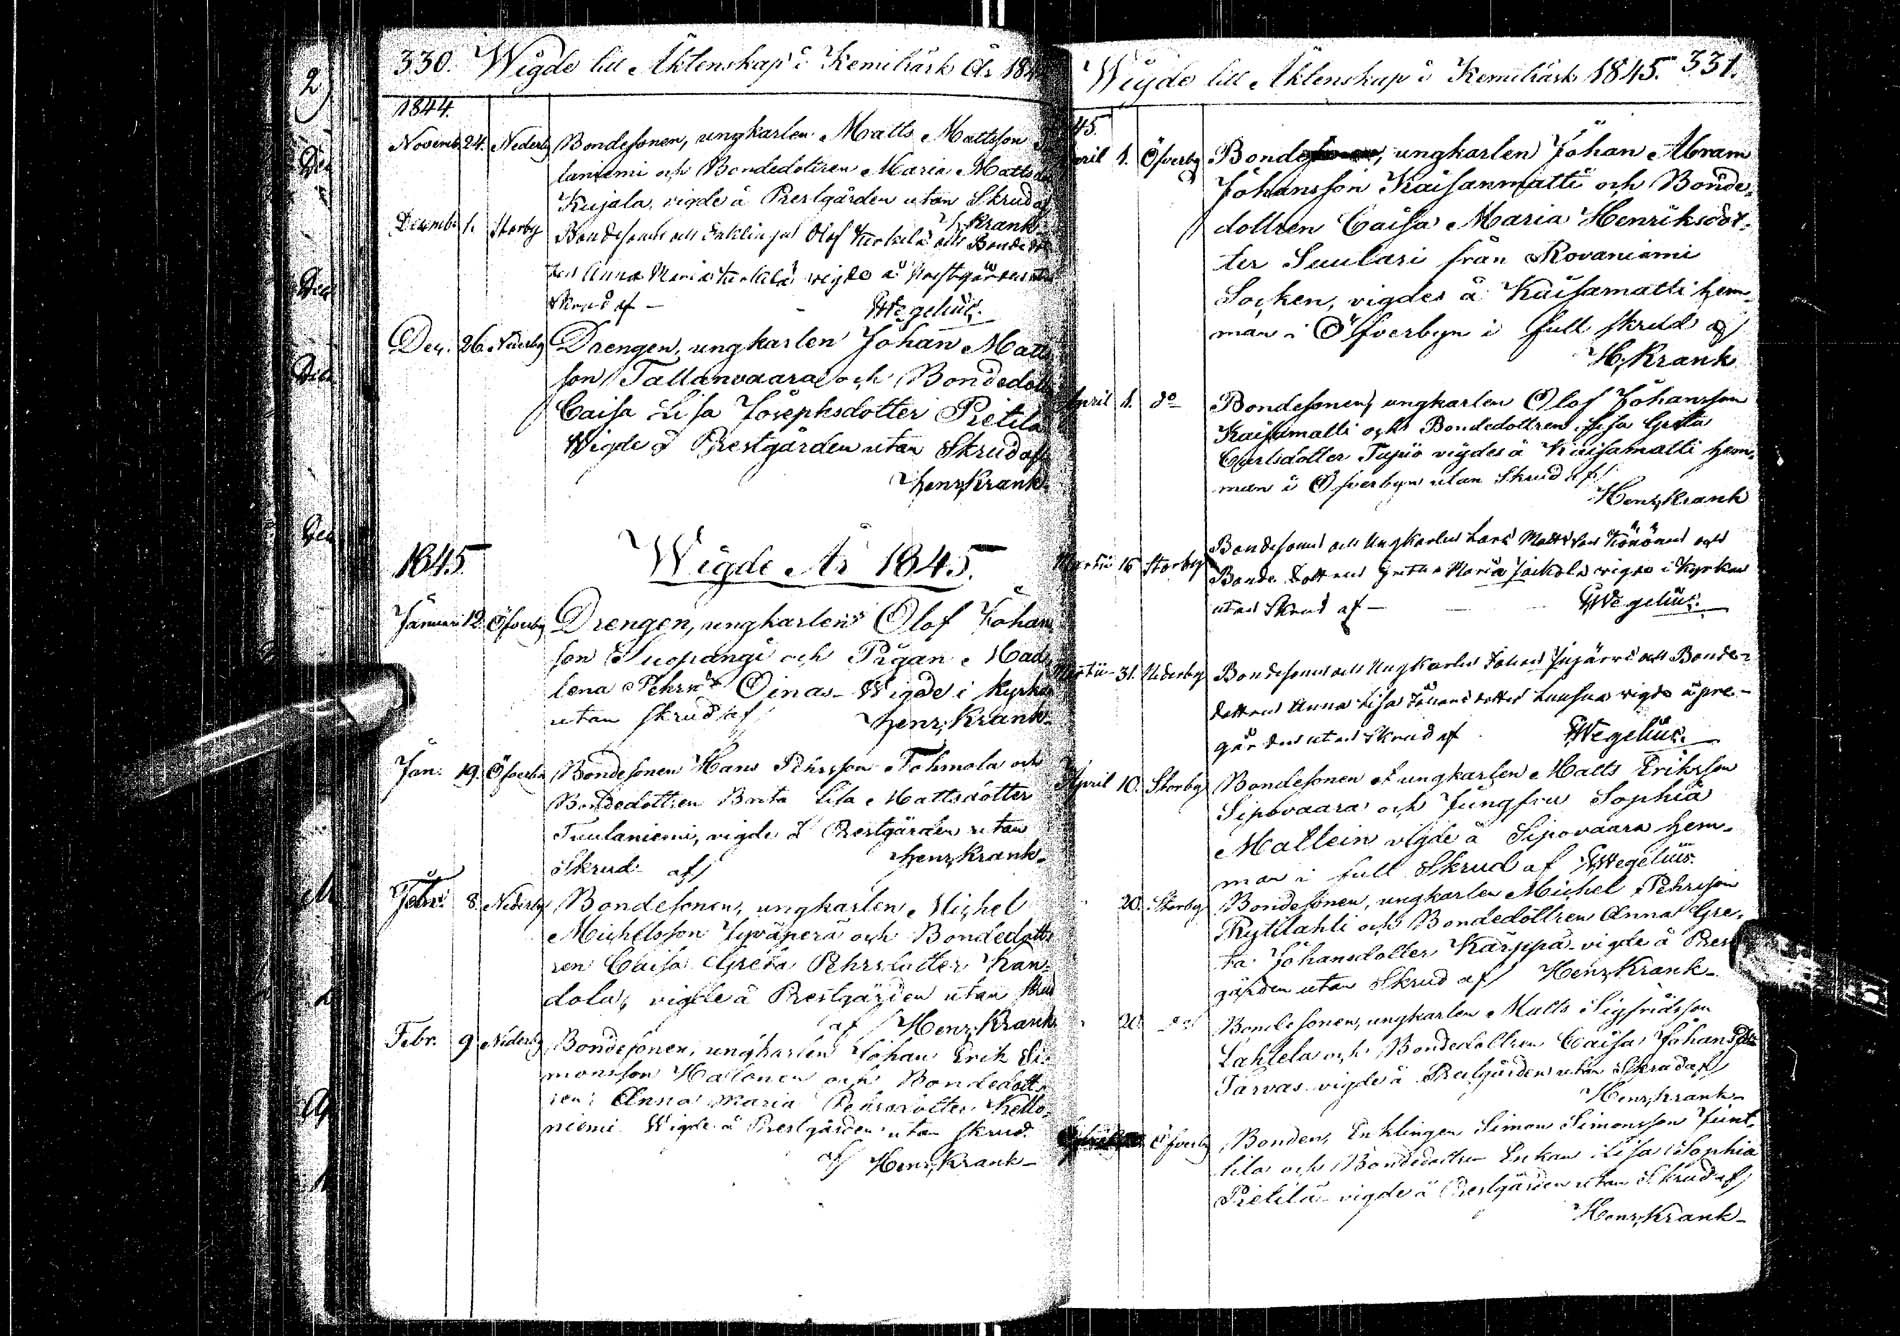 330. Wigde till Äktenskap i Kemiträsk År 184
1844.
Novemb. 24. Nederby Bondesonen, ungkarlen Matts Mattsson
laniemi och Bondedottren Maria Matts
Kujala, vigde å Prestgården utan Skrud af
H. Krank
Decembr 1. Storby Bondesonen och Enklingen Olof Kerkelä och Bonde
Anna Maria vigde å Prestgården utan
Skrud af — Wegelius.
Dec. 26. Nederby Drengen, ungkarlen Johan Matts
son Tallanvaara och Bondedott
Caisa Lisa Josephsdotter Pietilä
Wigde å Prestgården utan Skrud af
Henr. Krank
1845 Wigde År 1845.
Januari 12. Öfverby Drengen, ungkarlen Olof Johan
son Suopangi och Pigan Mad
lena Pehrsd. Oinas Wigde i kyrkan
utan skrud af Henr. Krank
Jan. 19. Öfverby Bondesonen Hans Pehrsson Tohmola och
Bondedottren Brita Lisa Mattsdotter
Tuulaniemi, vigde å Prestgården utan
Skrud af Henr. Krank
Febr. 8. Nederby Bondesonen, ungkarlen Michel
Michelsson Jyväperä och Bondedott
ren Caisa Greta Pehrsdotter Kan-
dola, vigde å Prestgården utan skrud
af Henr. Krank
Febr. 9 Nederby Bondesonen, ungkarlen Johan Erik Si-
monsson Halonen och Bondedott
ren Anna Maria Pehrsdotter Kello-
niemi Wigde å Prestgården utan skrud.
af Henr. Krank
Wigde till Äktenskap i Kemiträsk 1845. 331.
45.
April 1. Öfverby Bonde, ungkarlen Johan Abram
Johansson Kaisanmatti och Bonde-
dottren Caisa Maria Henriksdot-
ter Suulari från Rovaniemi
Socken, vigdes å Kaisamatti hem-
man i Öfverbyn i full skrud af
H. Krank
April 1. do Bondesonen, ungkarlen Olof Johansson
Kaisamatti och Bondedottren Lisa Greta
Carlsdotter Tapio vigdes å Kaisamatti hem-
man i Öfverbyn utan Skrud af
Henr. Krank
Martii 16 Storby Bondesonen och Ungkarlen Lars Mattsson Könönen och
Bonde Dottren Greta Maria Jackola vigde i Kyrkan
utan Skrud af — Wegelius.
Martii 31. Nederby Bondesonen och Ungkarlen Johan Jujärvi och Bonde-
dottren Anna Lisa Johansdotter vigde å pre-
gården utan Skrud af Wegelius.
April 10. Storby Bondesonen ungkarlen Matts Eriksson
Sipovaara och Jungfru Sophia
Mallein vigde å Sipovaara hem-
man i full Skrud af Wegelius.
20. Storby Bondesonen, ungkarlen Michel Pehrsson
Rytilahti och Bondedottren Anna Gre-
ta Johansdotter Karppa vigde å Prest
gården utan Skrud af Henr. Krank
20. do Bondesonen, ungkarlen Matts Sigfridsson
Lahtela och Bondedottren Caisa Johansdtr
Tarvas vigde å Prestgården utan Skrud af
Henr. Krank
Öfverby Bonden, Enklingen Simon Simonsson Junt-
tila och Bondedottren Enkan Lisa Sophia
Pietilä vigde å Prestgården utan Skrud af
Henr. Krank